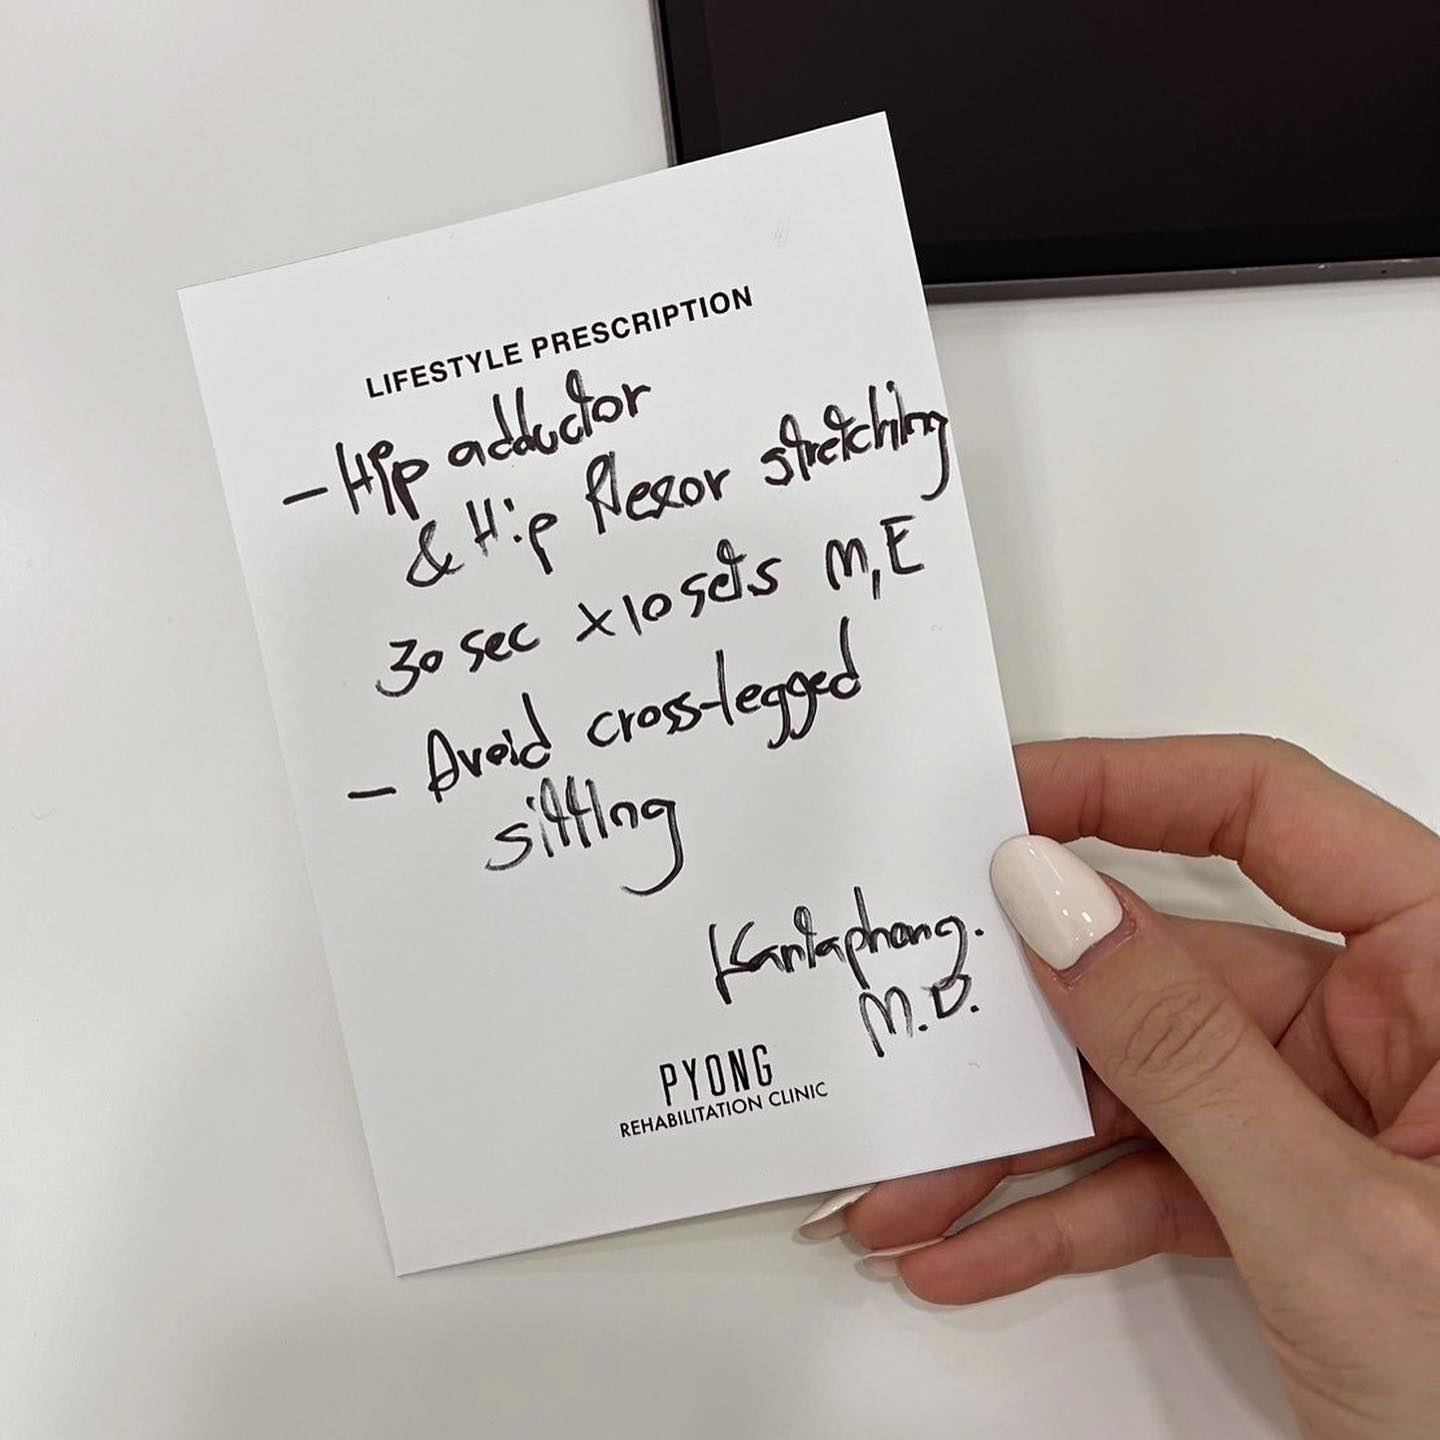 LIFESTYLE PRESCRIPTION
- Hip adductor
& Hip flexor stretching
30 sec x 10 sets M, E
- Avoid cross-legged
sitting
Kantaphong.
M.D.
PYONG
REHABILITATION CLINIC